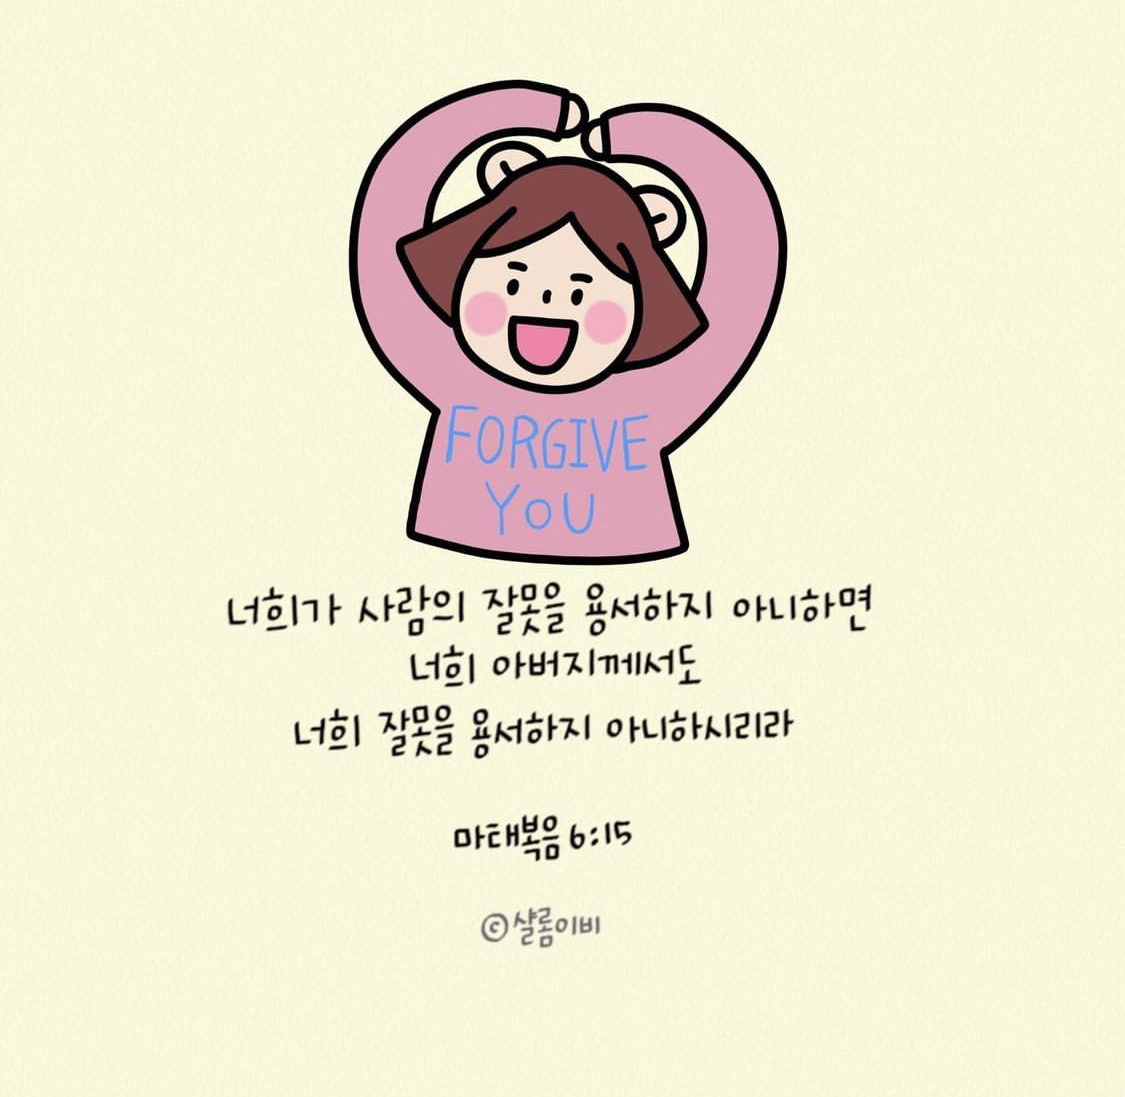 FORGIVE
YOU
너희가 사람의 잘못을 용서하지 아니하면
너희 아버지께서도
너희 잘못을 용서하지 아니하시리라
마태복음 6:15
©샬롬이비